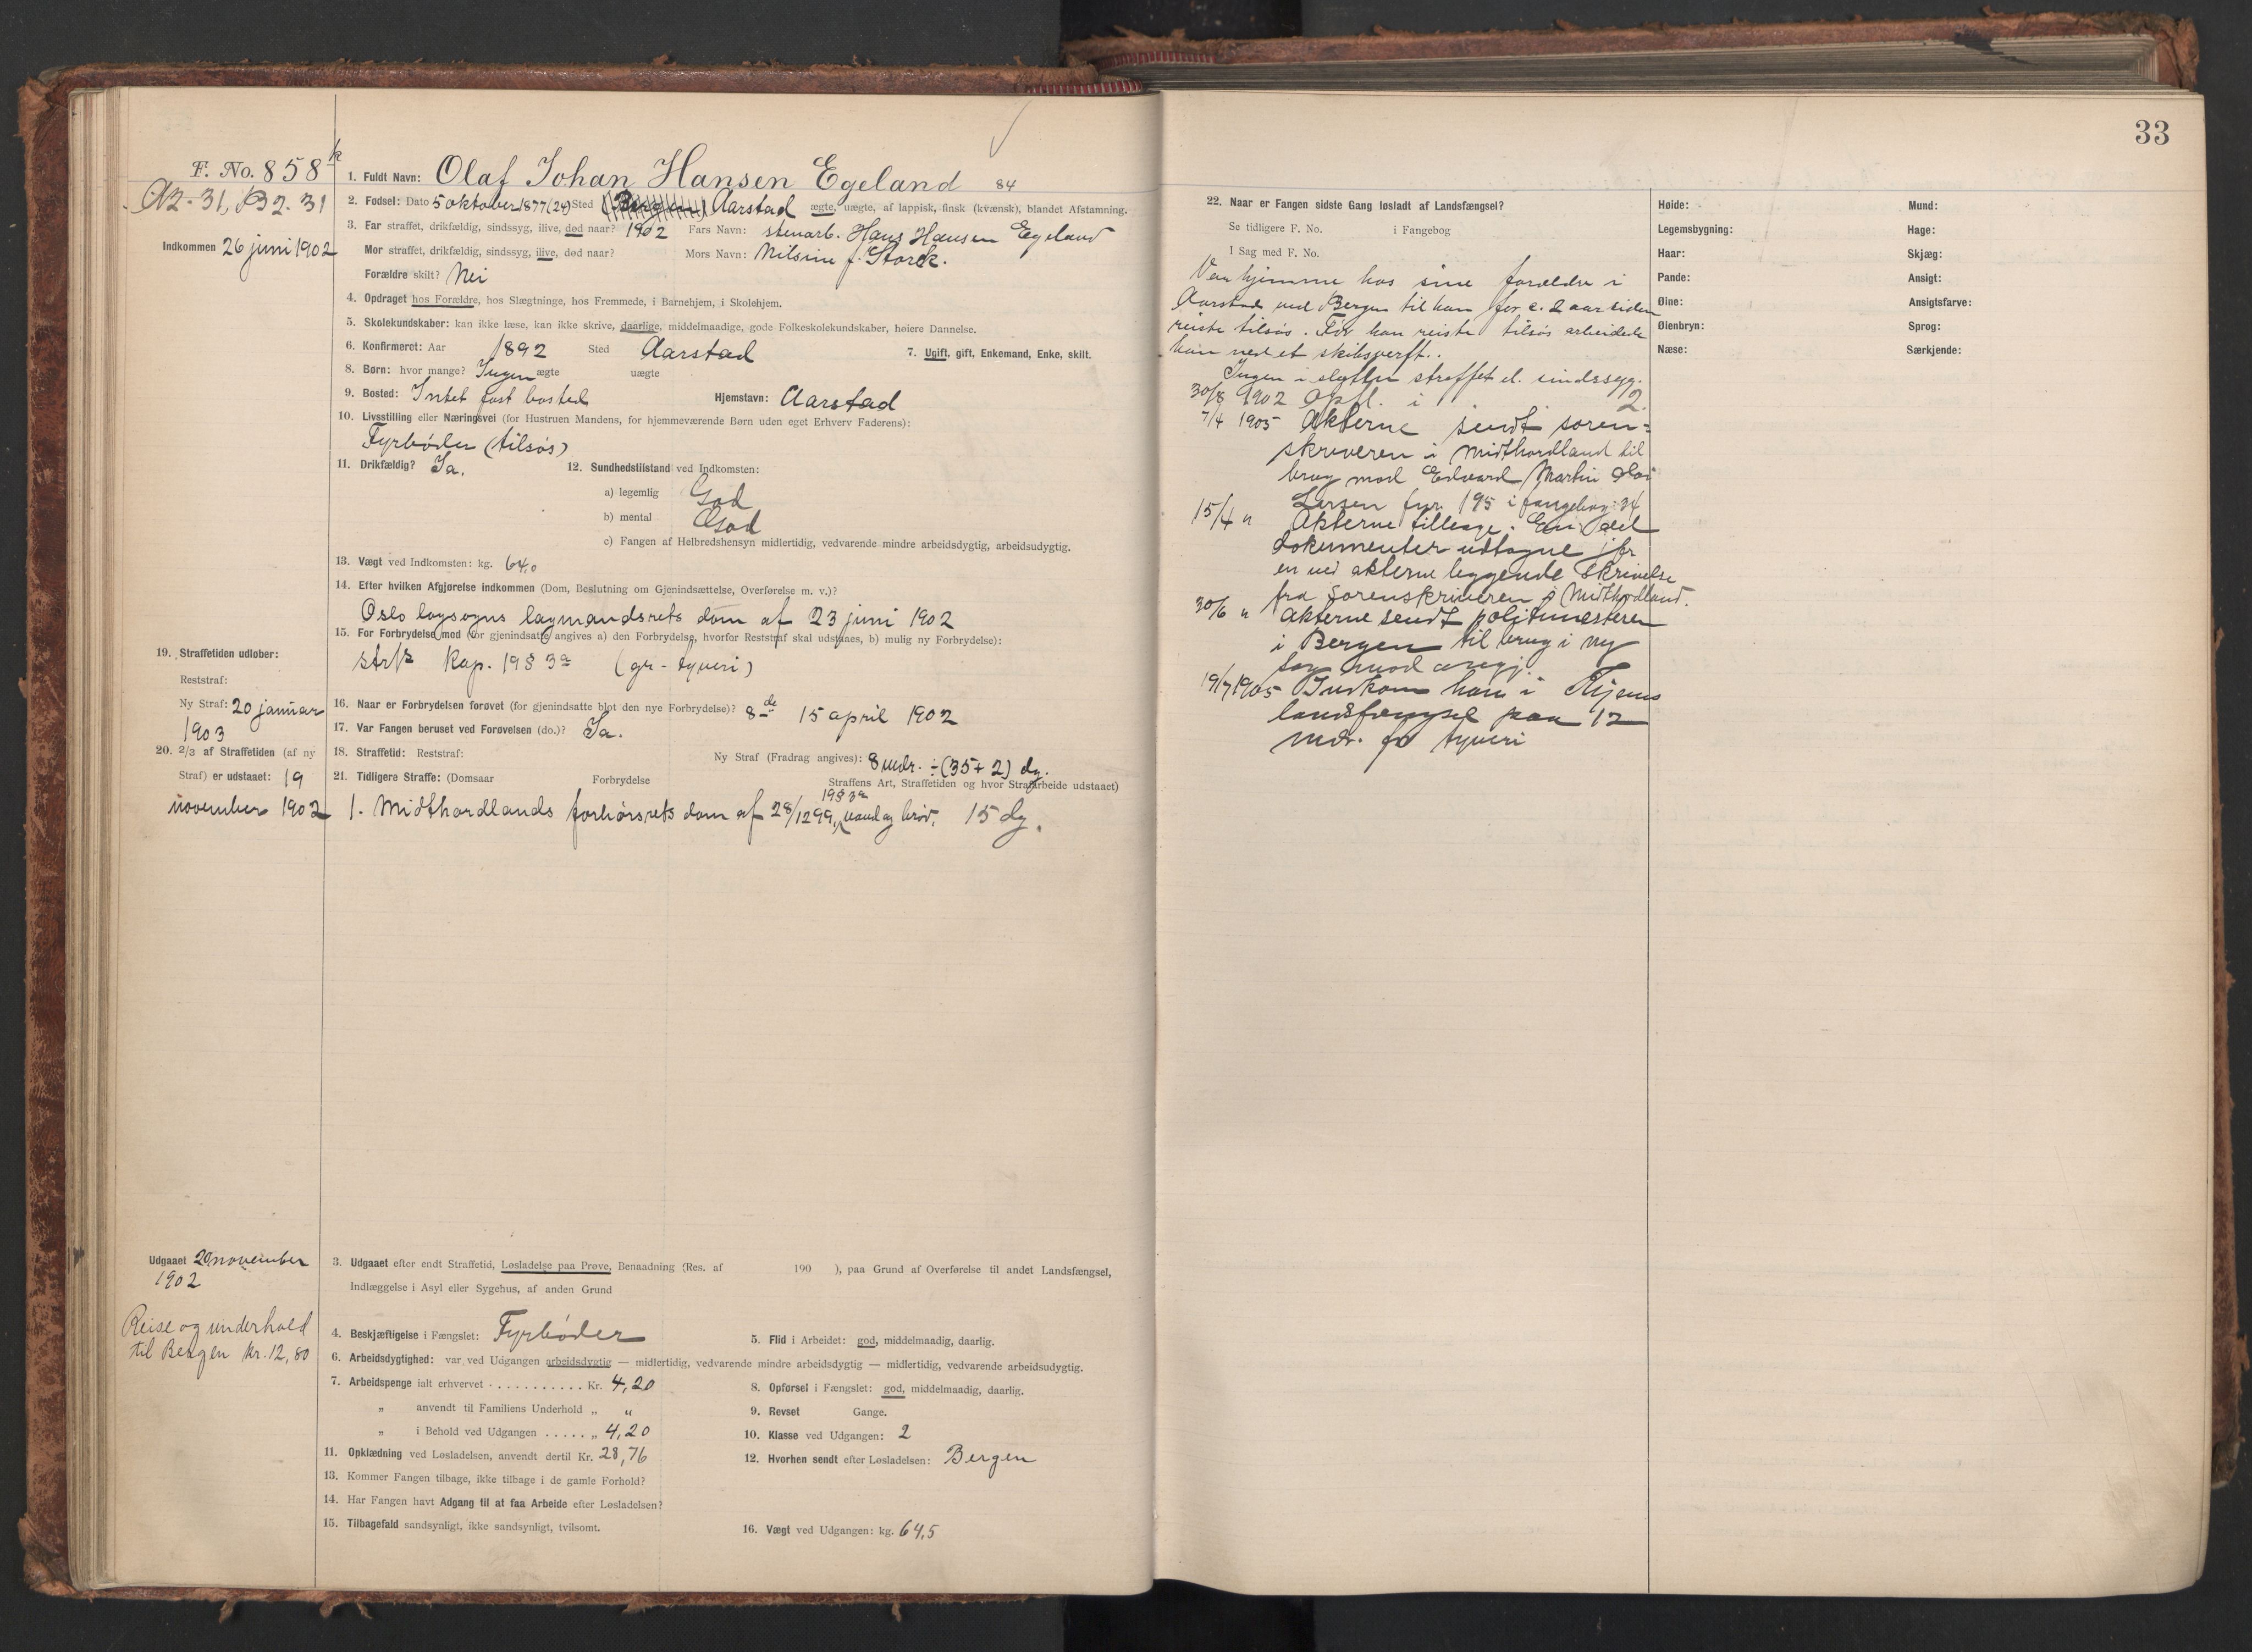 33
F. No. 858 k
A2-31, B2. 31
Indkommen 26 juni 1902
1. Fuldt Navn: Olaf Johan Hansen Egeland 84
2. Fødsel: Dato 5 oktober 1877 (24) Sted (Bergen) Aarstad ægte, uægte, af lappisk, finsk (kvænsk), blandet Afstamning.
3. Far straffet, drikfældig, sindssyg, ilive, død naar? 1902 Fars Navn: stenarb. Hans Hansen Egeland
Mor straffet, drikfældig, sindssyg, ilive, død naar? Mors Navn: Nilsine f. Storck.
Forældre skilt? Nei
4. Opdraget hos Forældre, hos Slægtninge, hos Fremmede, i Barnehjem, i Skolehjem.
5. Skolekundskaber: kan ikke læse, kan ikke skrive, daarlige, middelmaadige, gode Folkeskolekundskaber, høiere Dannelse.
6. Konfirmeret: Aar 1892 Sted Aarstad 7. Ugift, gift, Enkemand, Enke, skilt.
8. Børn: hvor mange? Ingen ægte uægte
9. Bosted: Intet fast bosted Hjemstavn: Aarstad
10. Livsstilling eller Næringsvei (for Hustruen Mandens, for hjemmeværende Børn uden eget Erhverv Faderens):
Fyrbøder (tilsøs)
11. Drikfældig? Ja. 12. Sundhedstilstand ved Indkomsten:
a) legemlig God
b) mental God
c) Fangen af Helbredshensyn midlertidig, vedvarende mindre arbeidsdygtig, arbeidsudygtig.
13. Vægt ved Indkomsten: kg. 64,0
14. Efter hvilken Afgjørelse indkommen (Dom, Beslutning om Gjenindsættelse, Overførelse m. v.)?
Oslo lagsogns lagmandsrets dom af 23 juni 1902
15. For Forbrydelse mod (for gjenindsatte angives a) den Forbrydelse, hvorfor Reststraf skal udstaaes, b) mulig ny Forbrydelse):
strfk Kap. 19 § 3a (gr- tyveri)
16. Naar er Forbrydelsen forøvet (for gjenindsatte blot den nye Forbrydelse)? 8de 15 april 1902
17. Var Fangen beruset ved Forøvelsen (do.)? Ja.
18. Straffetid: Reststraf: Ny Straf (Fradrag angives): 8 mdr. ÷ (35 + 2) dg.
19. Straffetiden udløber:
Reststraf:
Ny Straf: 20 januar
1903
20. 2/3 af Straffetiden (af ny
Straf) er udstaaet: 19
november 1902
21. Tidligere Straffe: (Domsaar Forbrydelse Straffens Art, Straffetiden og hvor Strafarbeide udstaaet)
19 § 3a
1. Midthordlands forhørsrets dom af 28/12 99, vand og brød, 15 dg.
Udgaaet 20 november
1902
Reise og underhold
til Bergen kr. 12,80
3. Udgaaet efter endt Straffetid, Løsladelse paa Prøve, Benaadning (Res. af 190 ), paa Grund af Overførelse til andet Landsfængsel,
Indlæggelse i Asyl eller Sygehus, af anden Grund
4. Beskjæftigelse i Fængslet: Fyrbøder 5. Flid i Arbeidet: god, middelmaadig, daarlig.
6. Arbeidsdygtighed: var ved Udgangen arbeidsdygtig — midlertidig, vedvarende mindre arbeidsdygtig — midlertidig, vedvarende arbeidsudygtig.
7. Arbeidspenge ialt erhvervet . . . . . . . . . . . Kr. 4,20 8. Opførsel i Fængslet: god, middelmaadig, daarlig.
„ anvendt til Familiens Underhold „ „ 9. Revset Gange.
„ i Behold ved Udgangen . . . . . „ 4,20 10. Klasse ved Udgangen: 2
11. Opklædning ved Løsladelsen, anvendt dertil Kr. 28,76 12. Hvorhen sendt efter Løsladelsen: Bergen
13. Kommer Fangen tilbage, ikke tilbage i de gamle Forhold?
14. Har Fangen havt Adgang til at faa Arbeide efter Løsladelsen?
15. Tilbagefald sandsynligt, ikke sandsynligt, tvilsomt. 16. Vægt ved Udgangen: kg. 64,5
22. Naar er Fangen sidste Gang løsladt af Landsfængsel?
Se tidligere F. No. i Fangebog
I Sag med F. No.
Var hjemme hos sine forældre i
Aarstad ved Bergen til han for c. 2 aar siden
reiste tilsøs. Før han reiste tilsøs arbeidede
han ved et skibsverft.
Ingen i slegten straffet el. sindssyg.
30/8 1902 Opfl. i 2.
7/4 1905 Akterne sendt soren=
skriveren i Midthordland til
brug mod Edvard Martin
Larsen fnr. 195 i fangebog 34
15/4 " Akterne tilbage. En del
dokumenter udtagne jfr
en ved akterne liggende skrivelse
fra sorenskriveren i Midthordland.
30/6 " Akterne sendt politimesteren
i Bergen til brug i ny
sag mod
19/7 1905 Indkom han i
landsfængsel paa 12
mdr. for tyveri
Høide:
Legemsbygning:
Haar:
Pande:
Øine:
Øienbryn:
Næse:
Mund:
Hage:
Skjæg:
Ansigt:
Ansigtsfarve:
Sprog:
Særkjende: